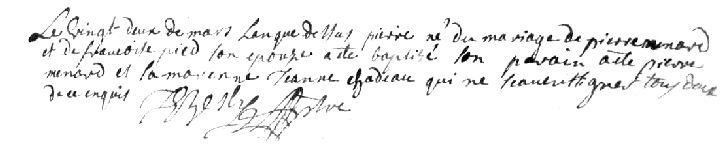 Le vingt deux de mars lan que dessus pierre né du mariage de pierre menard
et de francoise pied son epouze a ete baptisé son parain a ete pierre
menard et sa marenne Jeanne chadeau qui ne scavent signer tous deux
de ce enquis